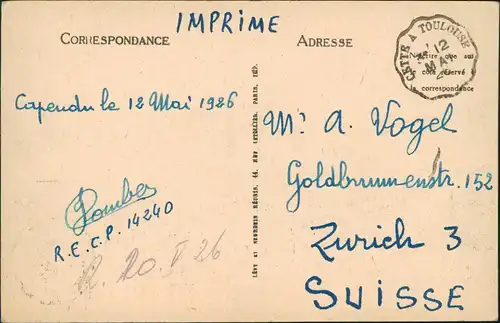 IMPRIME
CORRESPONDANCE
ADRESSE
CETTE A TOULOUSE
12
MAI
N'écrire que sur
le côté réservé à
la correspondance
Capendu le 12 Mai 1926
M. A. Vogel
Goldbrunnenstr. 152
Zurich 3
SUISSE
R.E.C.P. 14240
R. 20. V 26
LÉVY ET NEURDEIN RÉUNIS, 44, RUE LETELLIER, PARIS, IMP.